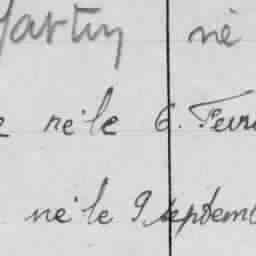 Martin né
né le 6. Fevr
né le 9 septemb